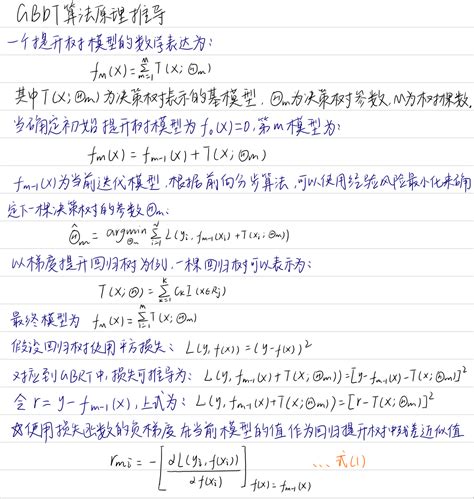 GBDT算法原理推导
一个提升树模型的数学表达为:
f_m(X) = Σ_{m=1}^{m} T(X; Θ_m)
其中T(X; Θ_m)为决策树表示的基模型, Θ_m为决策树参数, M为树棵数.
当确定初始提升树模型为f_0(X)=0, 第m模型为:
f_m(X) = f_{m-1}(X) + T(X; Θ_m)
f_{m-1}(X)为当前迭代模型, 根据前向分步算法, 可以使用经验风险最小化来确
定下一棵决策树的参数Θ_m:
Θ̂_m = argmin_{Θ_m} Σ_{i=1}^{N} L(y_i, f_{m-1}(x_i) + T(x_i; Θ_m))
以梯度提升回归树为例, 一棵回归树可以表示为:
T(X; Θ) = Σ_{k=1}^{K} C_k I(x∈R_j)
最终模型为 f_m(X) = Σ_{i=1}^{m} T(X; Θ_m)
假设回归树使用平方损失: L(y, f(x)) = (y-f(x))²
对应到GBRT中, 损失可推导为: L(y, f_{m-1}(X) + T(X; Θ_m)) = [y-f_{m-1}(X)-T(X; Θ_m)]²
令 r = y - f_{m-1}(X), 上式为: L(y, f_{m-1}(X) + T(X; Θ_m)) = [r-T(X; Θ_m)]²
☆使用损失函数的负梯度在当前模型的值作为回归提升树中残差近似值
r_{mi} = -[∂L(y_i, f(x_i)) / ∂f(x_i)]_{f(x)=f_{m-1}(x)} ... 式(1)